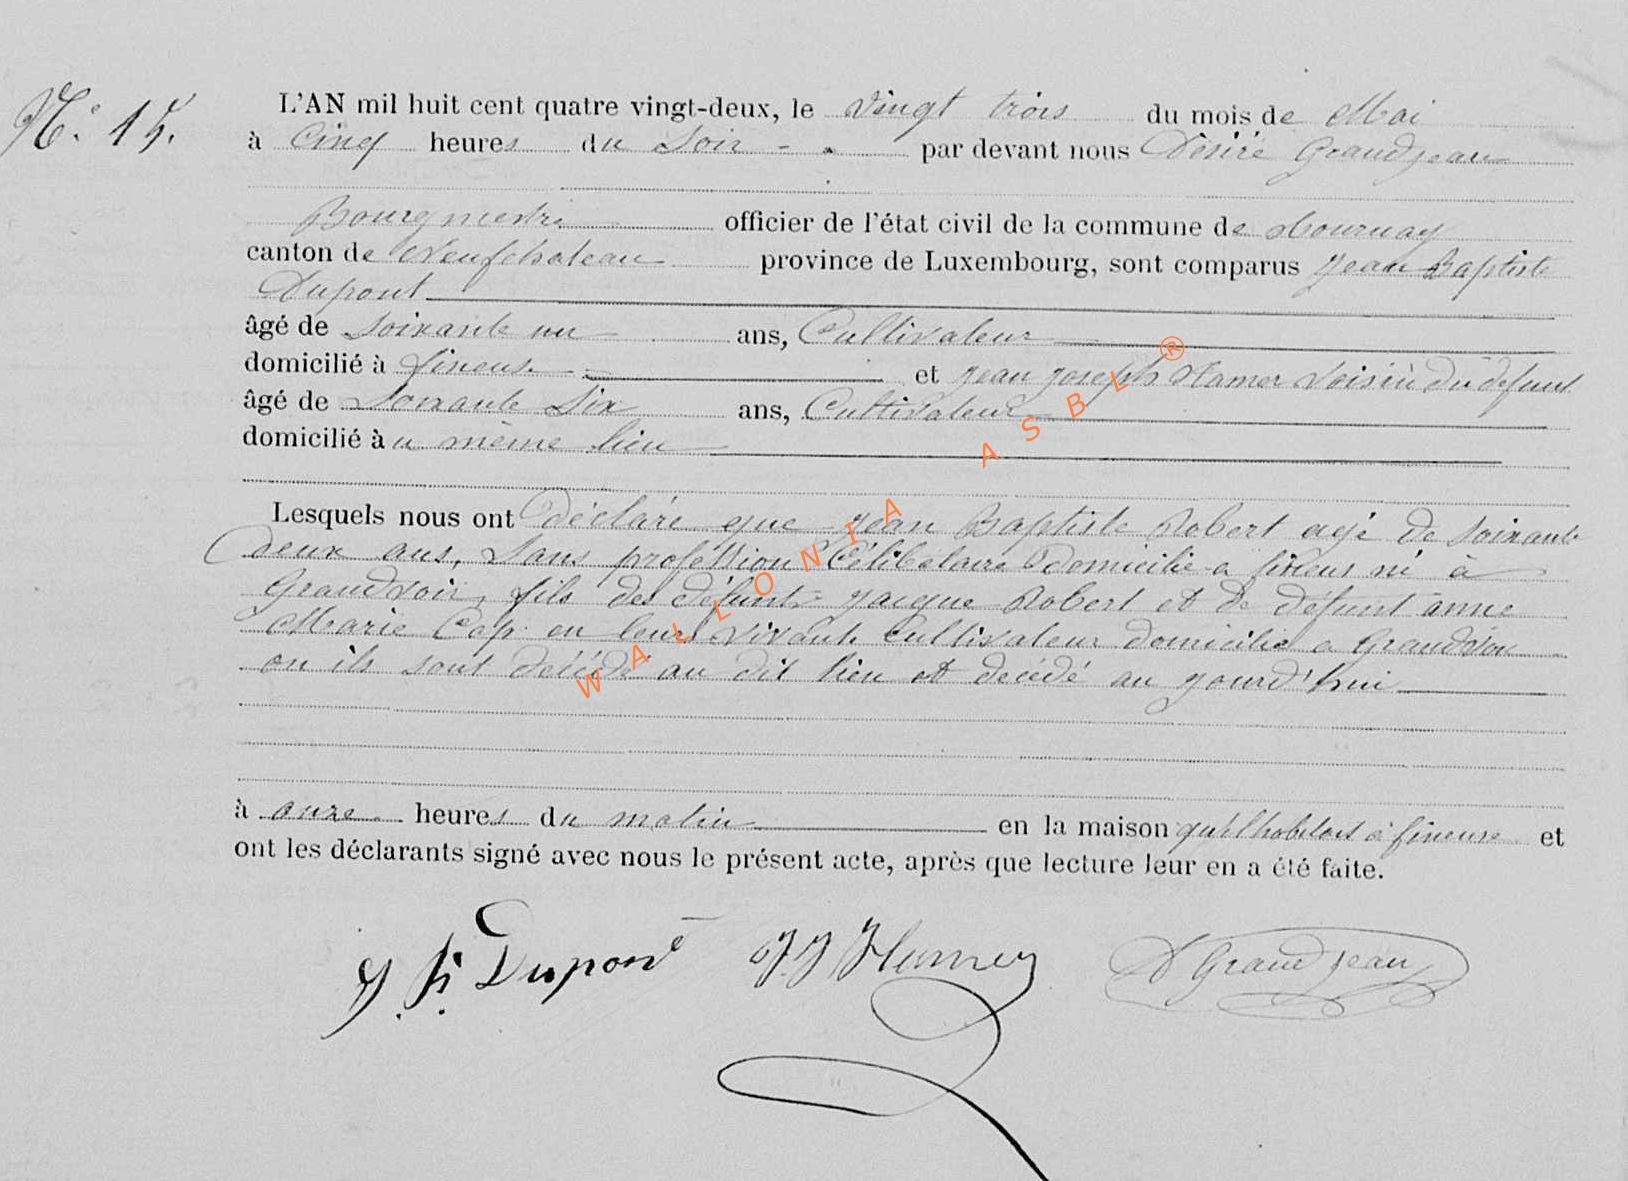 N.º 15.
L'AN mil huit cent quatre vingt-deux, le vingt trois du mois de Mai
à Cinq heures du Soir - par devant nous Désiré Grandjean
Bourgmestre officier de l'état civil de la commune de Tournay
canton de Neufchateau province de Luxembourg, sont comparus Jean Baptiste
Dupont
âgé de Soixante un ans, Cultivateur
domicilié à fineuse et Jean Joseph Hamer Voisin du défunt
âgé de Soixante Six ans, Cultivateur
domicilié à u même lieu
Lesquels nous ont déclaré que Jean Baptiste Robert agé de Soixante
deux ans, Sans proféssion Célibataire domicilié a fineus né à
Grandvoir, fils des défunts Jacque Robert et de défunt anne
Marie Cop en leurs vivante Cultivateur domicilié a Grandvoir
ou ils sont décédé au dit lieu et décédé au jourd'hui
à onze heures du matin en la maison qu'il habitait à fineuse et
ont les déclarants signé avec nous le présent acte, après que lecture leur en a été faite.
J. B. Dupont JJ Hamer D Grandjean
WALLONIA ASBL ®